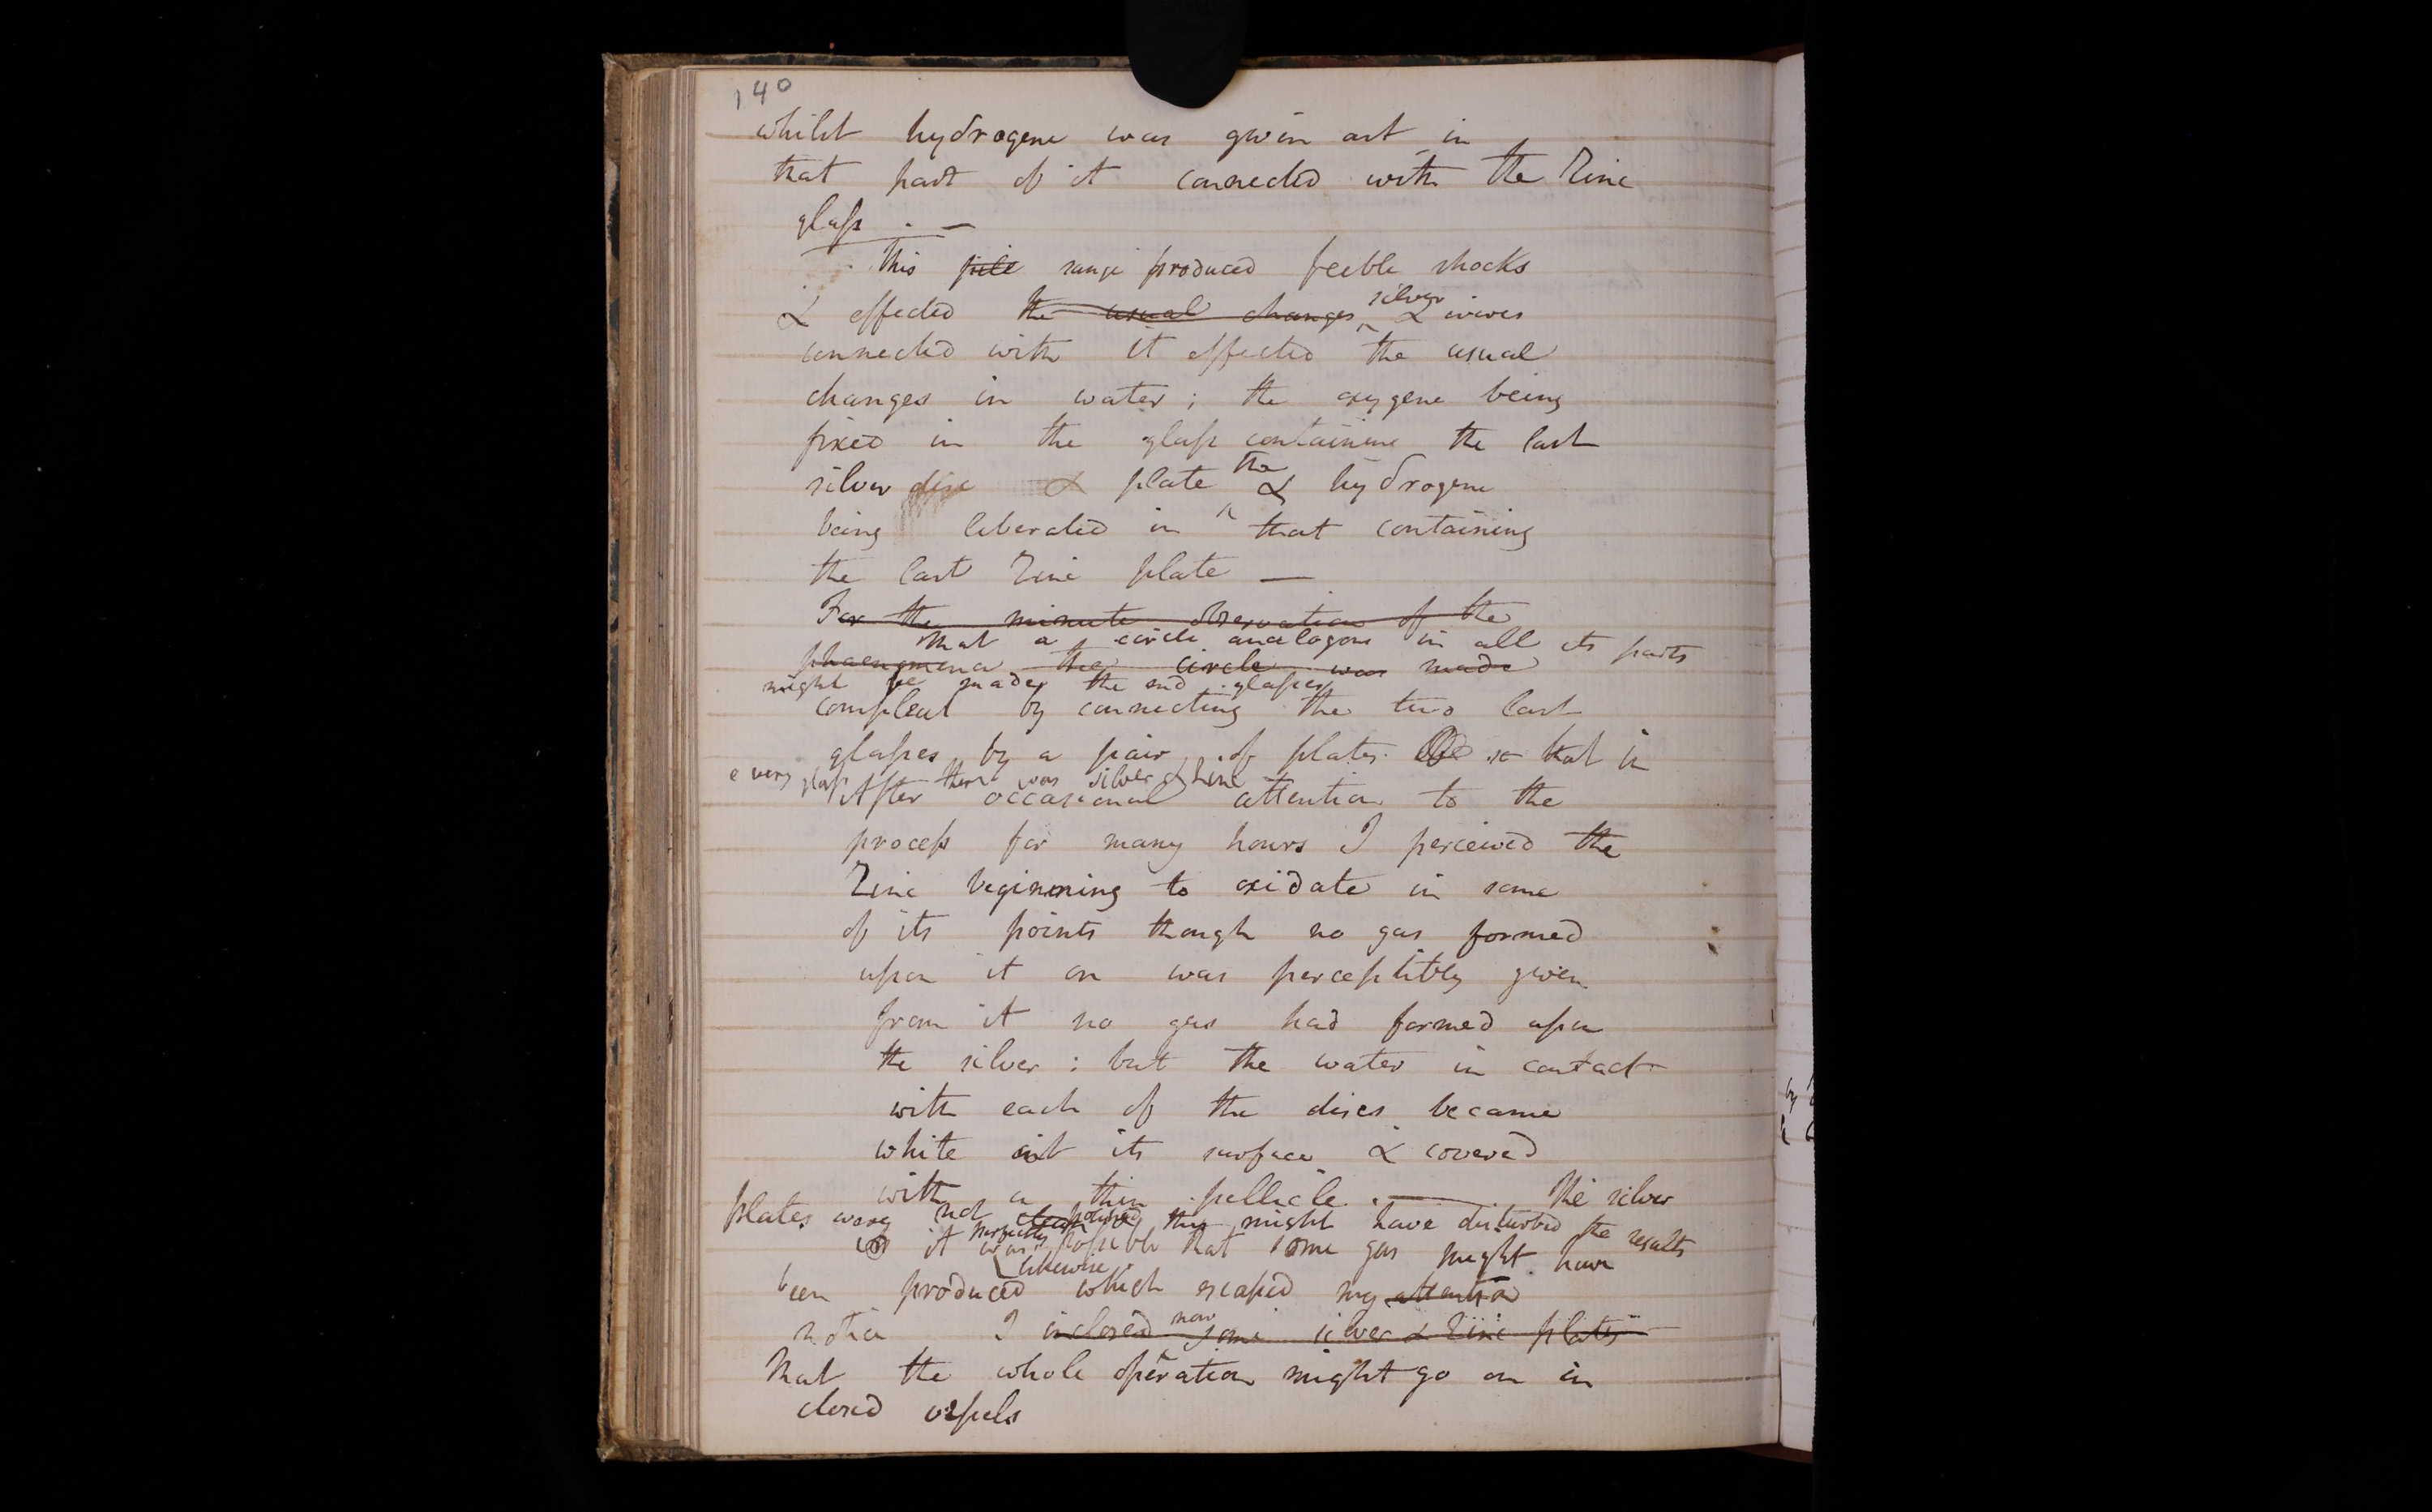 140
whilst hydrogene was given out in
that part of it connected with the Zinc
glass . —
This pile range produced feeble shocks
& effected the usual changes silver & wires
connected with it effected the usual
changes in water ; the oxygene being
fixed in the glass containing the last
silver disc & plate the & hydrogene
being liberated in that containing
the last Zinc plate —
For the minute observation of the
that a circle analogous in all its parts
phaenomena the circle was made
might be made the end glasses
compleat by connecting the two last
glasses by a pair of plates so that in
every glass there was silver & Zinc
After occasional attention to the
process for many hours I perceived the
Zinc beginning to oxidate in some
of its points though no gas formed
upon it or was perceptibly given
from it no gas had formed upon
the silver : but the water in contact
with each of the discs became
white at its surface & covered
with a thin pellicle . — The silver
plates were not clean polished this might have disturbed the results
perfectly
it was possible that some gas might have
likewise
been produced which escaped my attention
notice I inclosed now some silver & Zinc plates
that the whole operation might go on in
closed vessels